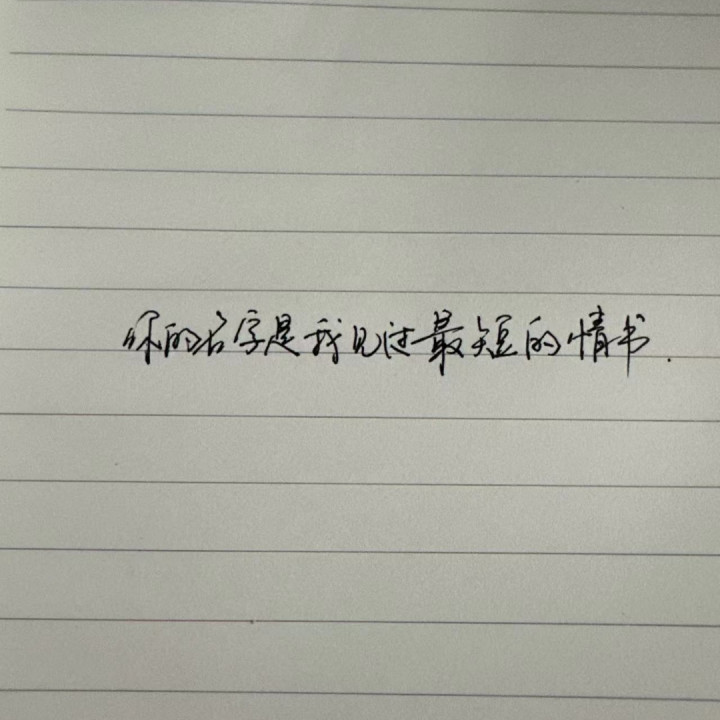 你的名字是我见过最短的情书.